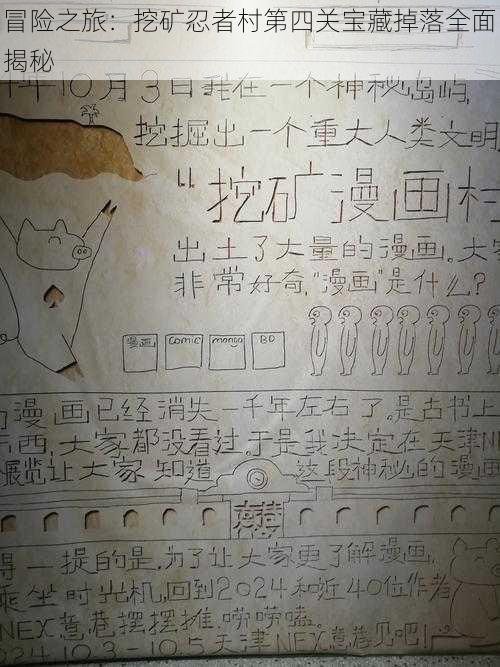 冒险之旅：挖矿忍者村第四关宝藏掉落全面
揭秘
年10月3日我在一个神秘岛屿,
挖掘出一个重大人类文明
“挖矿漫画村
出土了大量的漫画。大家
非常好奇,“漫画”是什么?
漫画 Comic manga BD
漫画已经消失一千年左右了。是古书上
东西,大家都没看过。于是我决定在天津N
展览让大家知道 这段神秘的漫画
得一提的是,为了让大家更了解漫画,
乘坐时光机,回到2024和近40位作者
NEX意巷摆摆摊,唠唠嗑。
2024.10.3-10.5天津NEX意巷见吧!